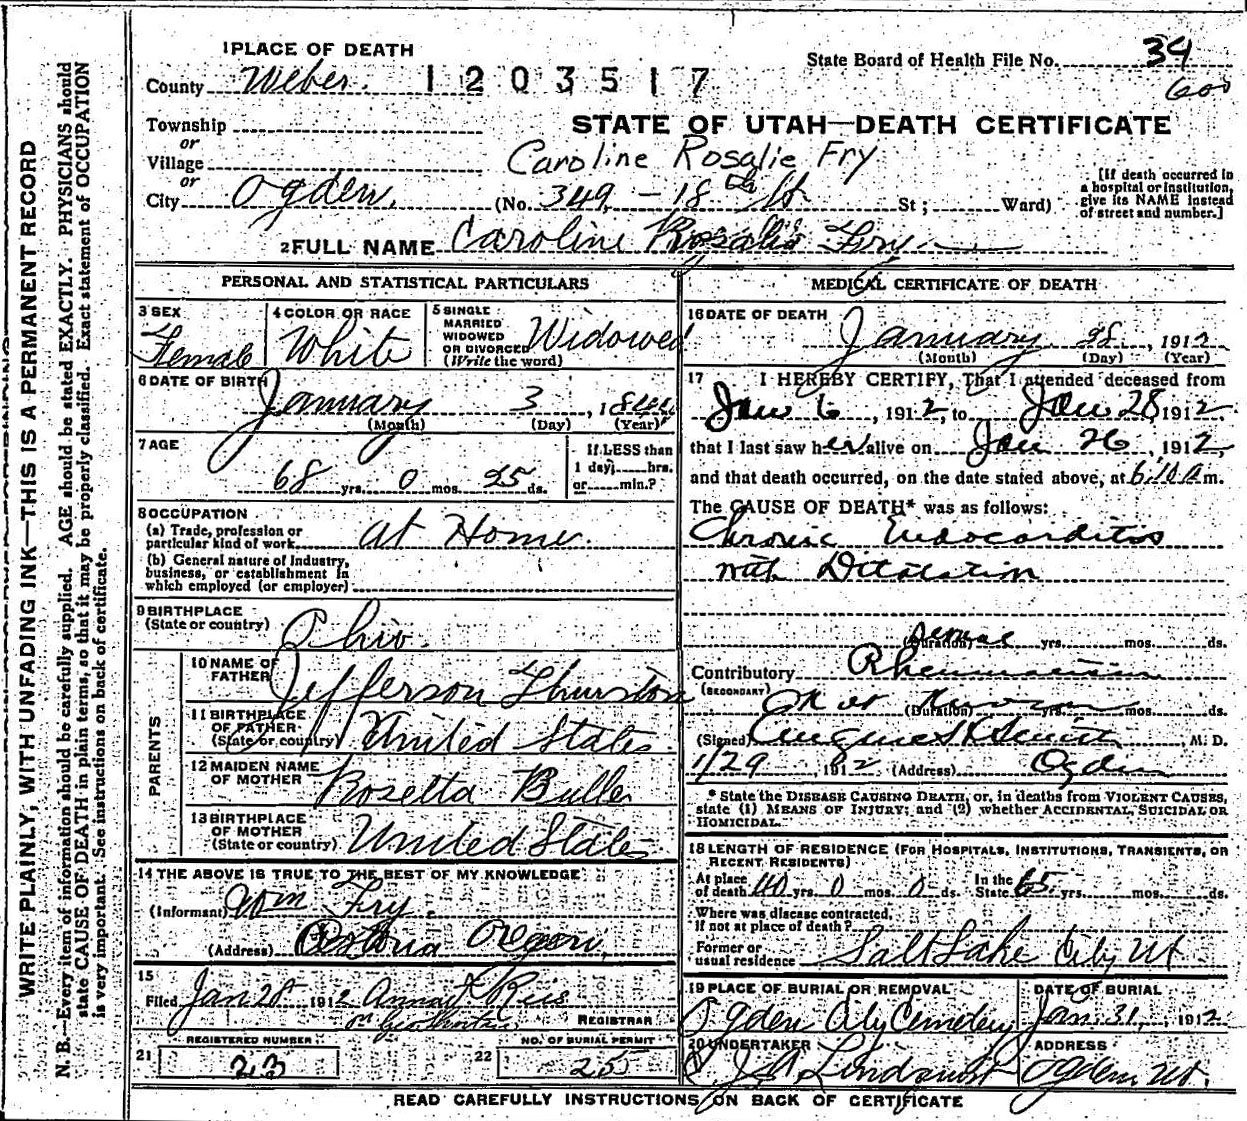 WRITE PLAINLY, WITH UNFADING INK—THIS IS A PERMANENT RECORD
N. B.—Every item of information should be carefully supplied. AGE should be stated EXACTLY. PHYSICIANS should
state CAUSE OF DEATH in plain terms, so that it may be properly classified. Exact statement of OCCUPATION
is very important. See instructions on back of certificate.
1 PLACE OF DEATH
State Board of Health File No. 34
600
County Weber. 1203517
STATE OF UTAH—DEATH CERTIFICATE
Township
or
Village
Caroline Rosalie Fry
or
City Ogden. (No. 349, - 18th St St; Ward)
[If death occurred in
a hospital or institution,
give its NAME instead
of street and number.]
2 FULL NAME Caroline Rosalie Fry
PERSONAL AND STATISTICAL PARTICULARS
3 SEX
Female
4 COLOR OR RACE
White
5 SINGLE
MARRIED
WIDOWED
OR DIVORCED
(Write the word)
Widowed
6 DATE OF BIRTH
January 3, 1844
(Month) (Day) (Year)
7 AGE
68 yrs. 0 mos. 25 ds.
If LESS than
1 day, hrs.
or min.?
8 OCCUPATION
(a) Trade, profession or
particular kind of work At Home.
(b) General nature of Industry,
business, or establishment in
which employed (or employer)
9 BIRTHPLACE
(State or country) Ohio.
PARENTS
10 NAME OF
FATHER Jefferson Thurston
11 BIRTHPLACE
OF FATHER
(State or country) United States
12 MAIDEN NAME
OF MOTHER Rosetta Bull
13 BIRTHPLACE
OF MOTHER
(State or country) United States
14 THE ABOVE IS TRUE TO THE BEST OF MY KNOWLEDGE
(Informant) Wm Fry.
(Address) Astoria Oregon,
15
Filed Jan 28 1912 Anna Reis
REGISTRAR
REGISTERED NUMBER
21 23
NO. OF BURIAL PERMIT
22 25
MEDICAL CERTIFICATE OF DEATH
16 DATE OF DEATH
January 28, 1912
(Month) (Day) (Year)
17 I HEREBY CERTIFY, That I attended deceased from
Jan 6, 1912, to Jan 28 1912
that I last saw her alive on Jan 26, 1912,
and that death occurred, on the date stated above, at 6:10 a m.
The CAUSE OF DEATH* was as follows:
Chronic Endocarditis
with Dilatation
(Duration) yrs. mos. ds.
Contributory Rheumatism
(SECONDARY)
(Duration) yrs. mos. ds.
(Signed) M. D.
1/29 1912 (Address) Ogden
* State the DISEASE CAUSING DEATH, or, in deaths from VIOLENT CAUSES,
state (1) MEANS OF INJURY; and (2) whether ACCIDENTAL, SUICIDAL OR
HOMICIDAL.
18 LENGTH OF RESIDENCE (FOR HOSPITALS, INSTITUTIONS, TRANSIENTS, OR
RECENT RESIDENTS)
At place
of death 40 yrs. 0 mos. 0 ds.
In the
State 65 yrs. mos. ds.
Where was disease contracted,
If not at place of death?
Former or
usual residence Salt Lake City Ut
19 PLACE OF BURIAL OR REMOVAL
Ogden City Cemetery
DATE OF BURIAL
Jan. 31, 1912
20 UNDERTAKER
J A Lindquist
ADDRESS
Ogden Ut.
READ CAREFULLY INSTRUCTIONS ON BACK OF CERTIFICATE